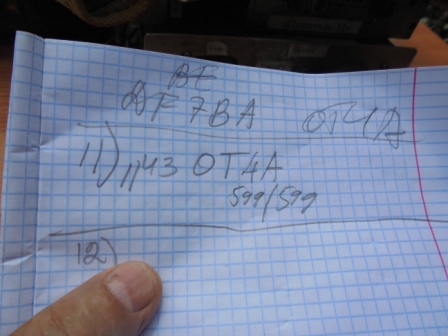 BE
DF7BA OT4A
11) 1143 OT4A
599/599
12)